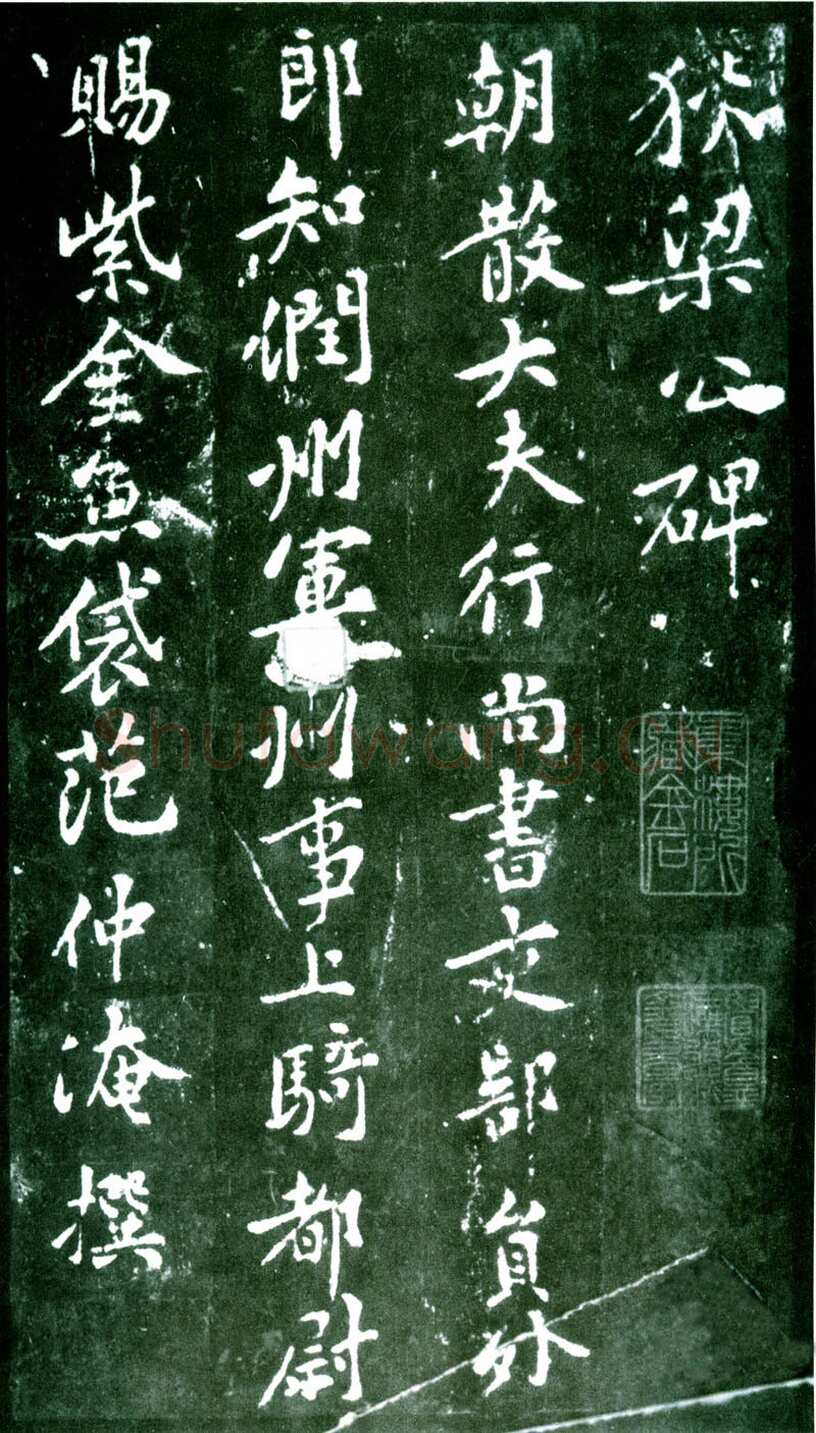 狄梁公碑
朝散大夫行尚書吏部員外
郎知潤州軍州事上騎都尉
賜紫金魚袋范仲淹撰
shufawang.CN